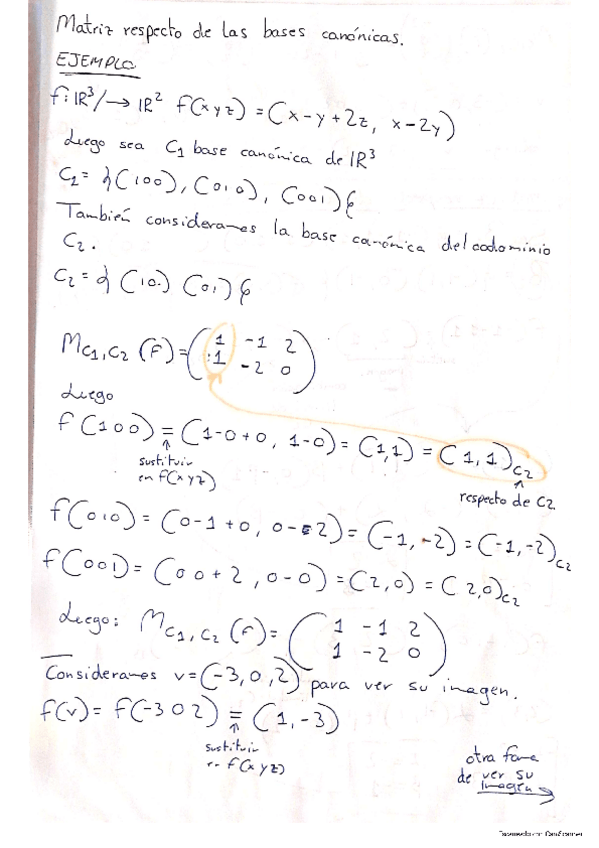 Matriz respecto de las bases canónicas.
EJEMPLO
f: IR³/→ IR² f(x y z) = (x-y+2z, x-2y)
Luego sea C1 base canónica de IR³
C1 = {(1 0 0), (0 1 0), (0 0 1)}
También consideramos la base canónica del codominio
C2.
C2 = {(1 0) (0,1)}
M C1,C2 (F) = (1 -1 2
1 -2 0)
Luego
f(1 0 0) = (1-0+0, 1-0) = (1,1) = (1,1)C2
sustituir
en f(x y z)
respecto de C2.
f(0 1 0) = (0-1+0, 0-2) = (-1,-2) = (-1,-2)C2
f(0 0 1) = (0 0+2, 0-0) = (2,0) = (2,0)C2
Luego: M C1,C2 (F) = (1 -1 2
1 -2 0)
Consideramos v=(-3,0,2) para ver su imagen.
f(v) = f(-3 0 2) = (1,-3)
sustituir
en f(x y z)
otra forma
de ver su
imagen →
Escaneado con CamScanner